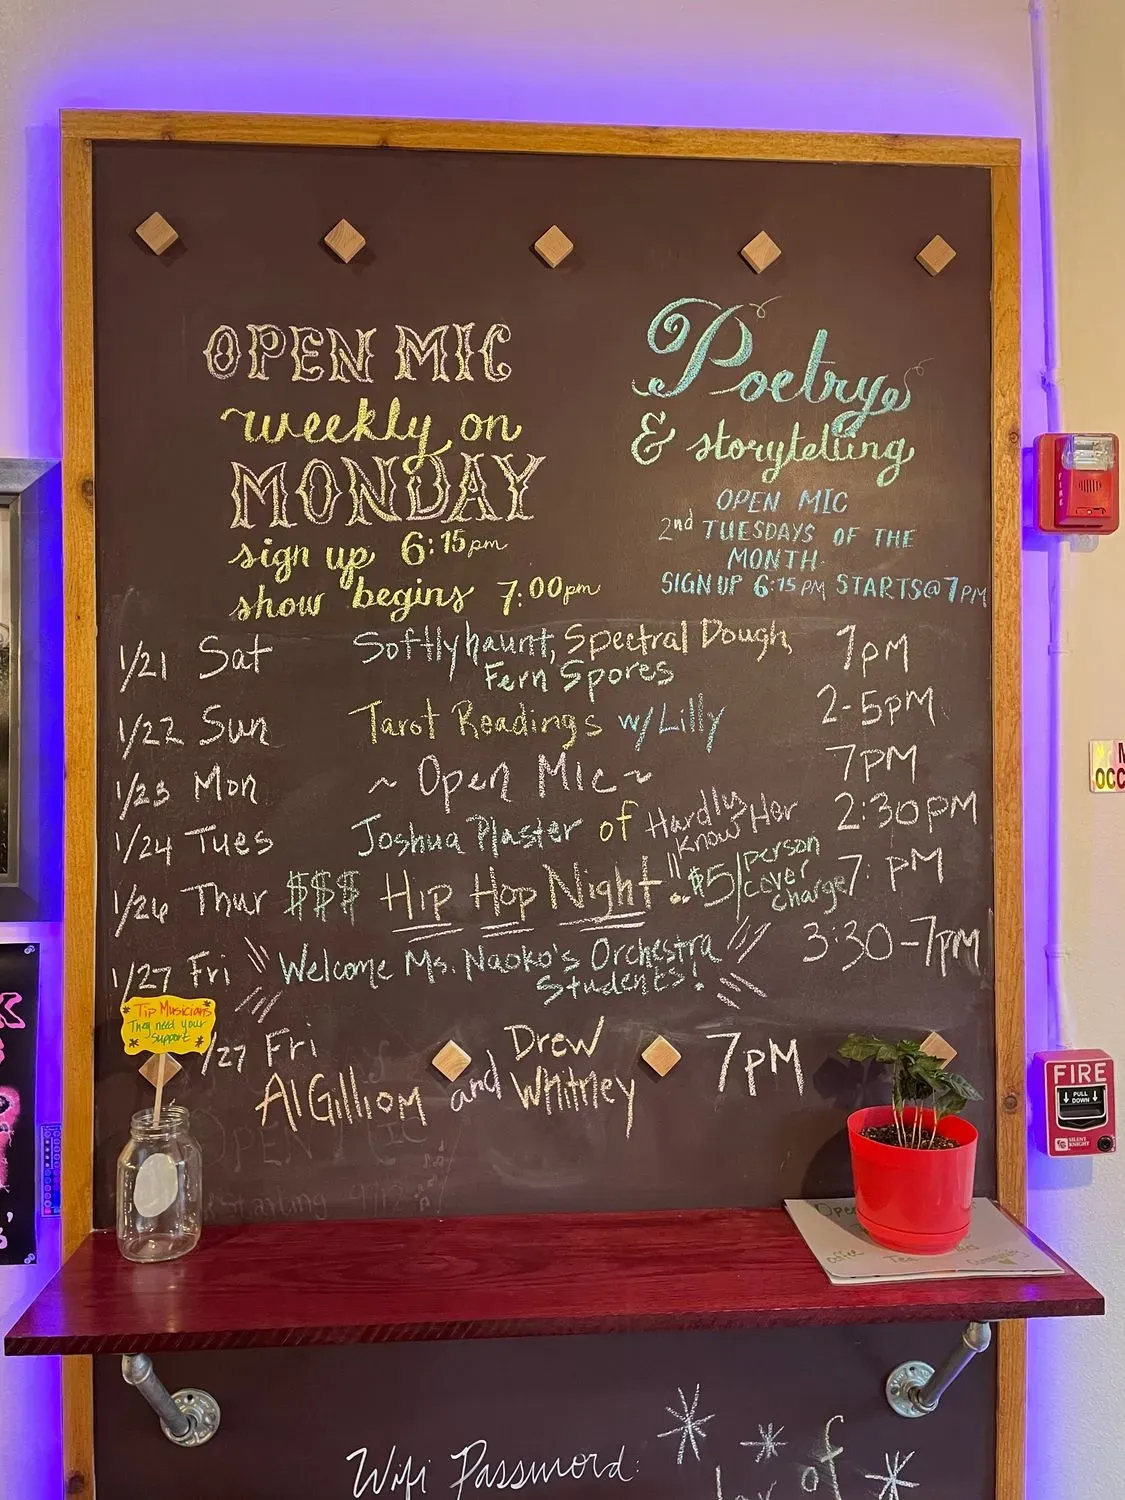 OPEN MIC
weekly on
MONDAY
sign up 6:15pm
show begins 7:00pm
Poetry
& storytelling
OPEN MIC
2nd TUESDAYS OF THE
MONTH.
SIGN UP 6:15 PM STARTS@7PM
1/21 Sat Softlyhaunt, Spectral Dough, 7pM
Fern Spores
1/22 Sun Tarot Readings w/Lilly 2-5pM
1/23 Mon ~ Open Mic ~ 7PM
1/24 Tues Joshua Plaster of Hardly Know Her 2:30PM
1/26 Thur $$$ Hip Hop Night!! $5/person cover charge 7: PM
1/27 Fri Welcome Ms. Naoko's Orchestra 3:30-7pm
Students!
1/27 Fri
Al Gilliom and Drew Whitney 7pM
Tip Musicians
They need your
support
OPEN MIC
Starting
Wifi Password:
of
FIRE
FIRE
PULL
DOWN
SILENT
KNIGHT
OCC
Tea